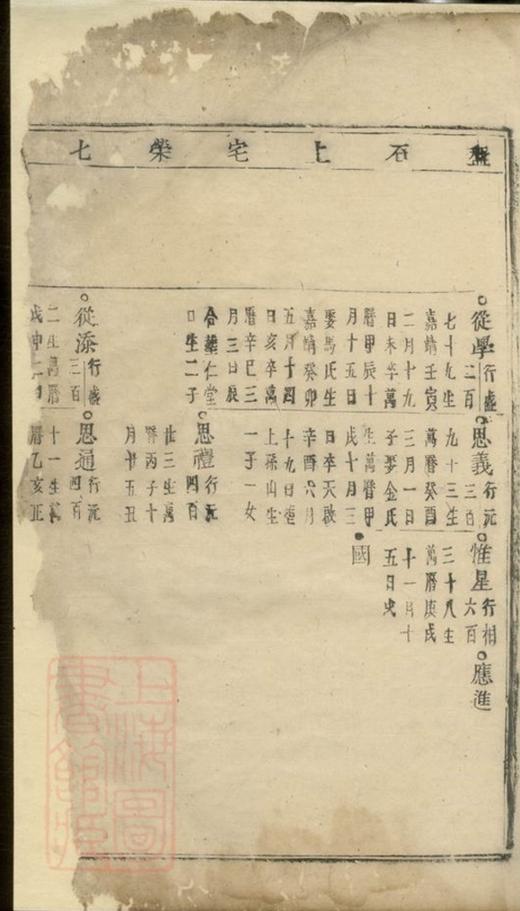 盤石上宅榮七
從學行盛二百
七十九生
嘉靖壬寅
二月十九
日未卒萬
曆甲辰十
月十五日
娶馬氏生
嘉靖癸卯
五月十四
日亥卒萬
曆辛巳三
月三日辰
合葬仁堂
生二子
從添行盛三百
二生萬曆
戊申二
思義行元三百
九十三生
萬曆癸酉
三月一日
子娶金氏
生萬曆甲
戌十月三
日卒天啟
辛酉六月
十九日
上孫山生
一子一女
思禮行元四百
廿三生萬
曆丙子十
月廿五丑
思通行元四百
十一生萬
曆乙亥正
惟星行相六百
三十八生
萬曆庚戌
十一月十
五日戌
國
應進
上海圖書館藏